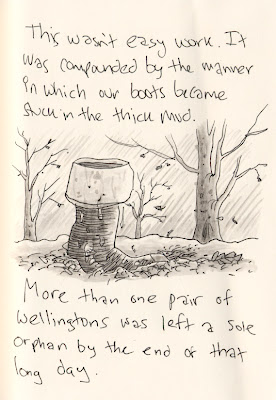 This wasn't easy work. It
was compounded by the manner
in which our boots became
stuck in the thick mud.
More than one pair of
Wellingtons was left a sole
orphan by the end of that
long day.